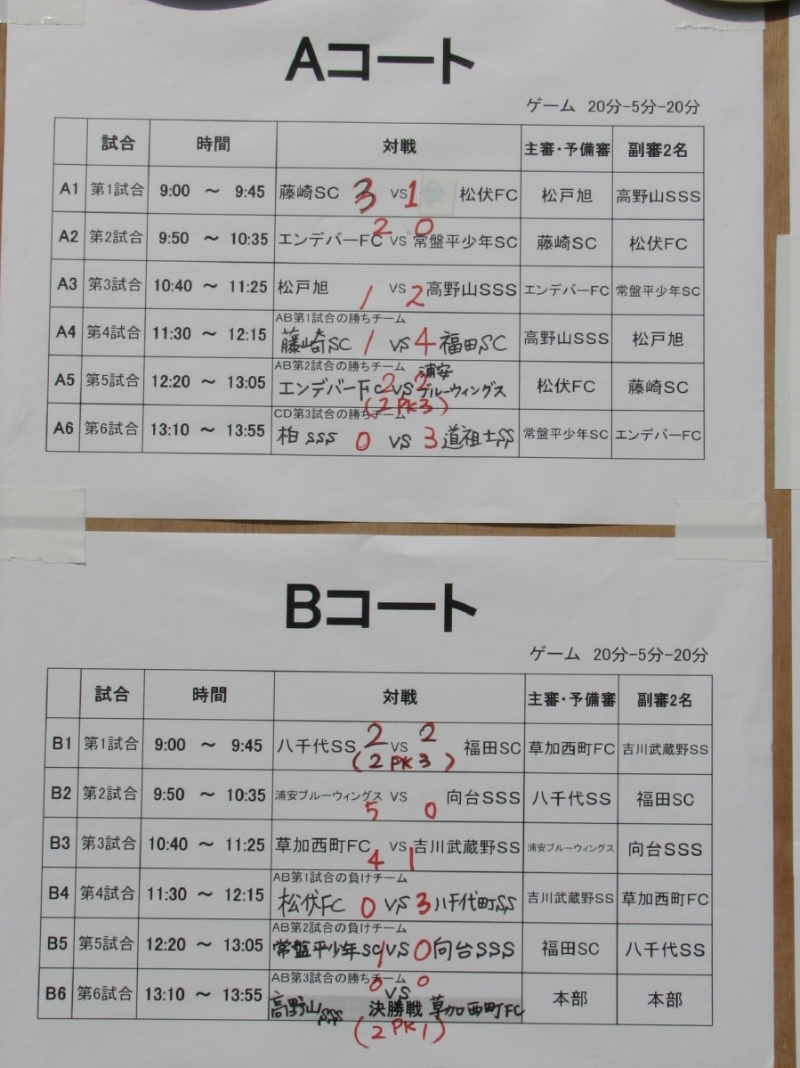 Aコート
ゲーム 20分-5分-20分
試合 時間 対戦 主審・予備審 副審2名
A1 第1試合 9:00 ～ 9:45 藤崎SC 3 vs 1 松伏FC 松戸旭 高野山SSS
A2 第2試合 9:50 ～ 10:35 エンデバーFC 2 vs 0 常盤平少年SC 藤崎SC 松伏FC
A3 第3試合 10:40 ～ 11:25 松戸旭 1 vs 2 高野山SSS エンデバーFC 常盤平少年SC
AB第1試合の勝ちチーム
A4 第4試合 11:30 ～ 12:15 藤崎SC 1 vs 4 福田SC 高野山SSS 松戸旭
AB第2試合の勝ちチーム
A5 第5試合 12:20 ～ 13:05 エンデバーFC 2 vs 2 浦安ブルーウィングス 松伏FC 藤崎SC
(2 PK 3)
CD第3試合の勝ちチーム
A6 第6試合 13:10 ～ 13:55 柏SSS 0 vs 3 道祖士SS 常盤平少年SC エンデバーFC
Bコート
ゲーム 20分-5分-20分
試合 時間 対戦 主審・予備審 副審2名
B1 第1試合 9:00 ～ 9:45 八千代SS 2 vs 2 福田SC 草加西町FC 吉川武蔵野SS
(2 PK 3)
B2 第2試合 9:50 ～ 10:35 浦安ブルーウィングス 5 vs 0 向台SSS 八千代SS 福田SC
B3 第3試合 10:40 ～ 11:25 草加西町FC 4 vs 1 吉川武蔵野SS 浦安ブルーウィングス 向台SSS
AB第1試合の負けチーム
B4 第4試合 11:30 ～ 12:15 松伏FC 0 vs 3 八千代町SS 吉川武蔵野SS 草加西町FC
AB第2試合の負けチーム
B5 第5試合 12:20 ～ 13:05 常盤平少年SC 1 vs 0 向台SSS 福田SC 八千代SS
AB第3試合の勝ちチーム
B6 第6試合 13:10 ～ 13:55 高野山SSS 0 vs 0 決勝戦 草加西町FC 本部 本部
(2 PK 1)